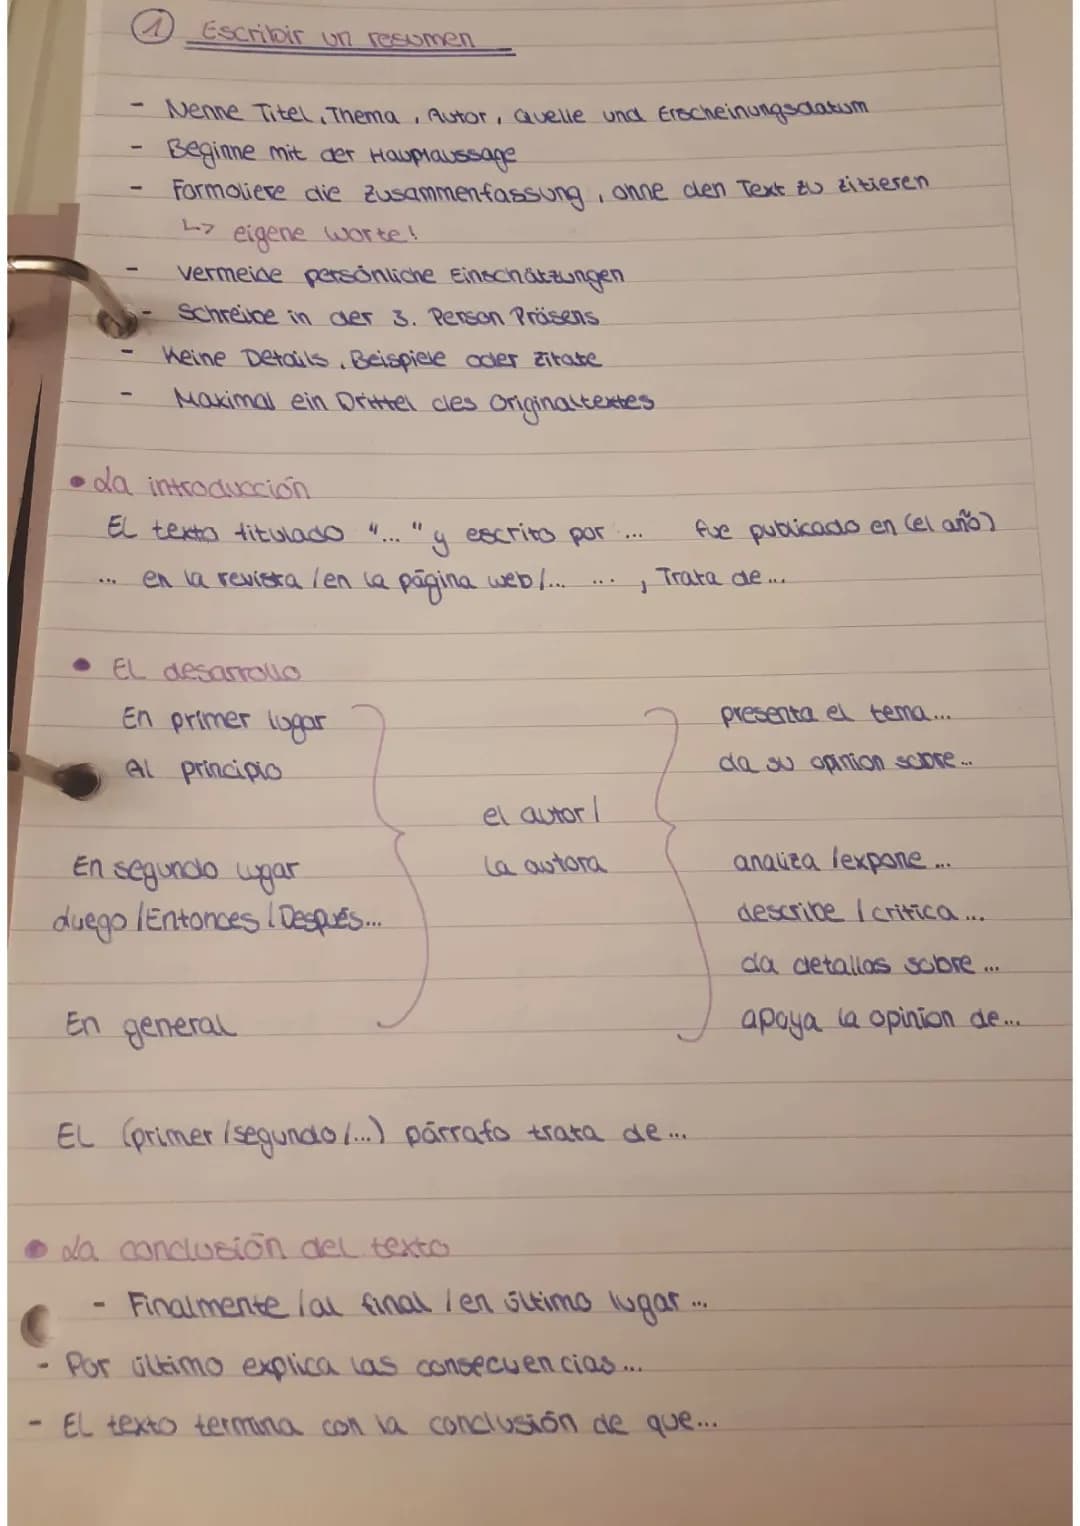 ① Escribir un resumen
- Nenne Titel, Thema, Autor, Quelle und Erscheinungsdatum
- Beginne mit der Hauptaussage
- Formuliere die Zusammenfassung, ohne den Text zu zitieren
↳ eigene Worte!
- Vermeide persönliche Einschätzungen
- Schreibe in der 3. Person Präsens
- Keine Details, Beispiele oder Zitate
- Maximal ein Drittel des Originaltextes
• La introducción
El texto titulado "..." y escrito por ... fue publicado en (el año)
... en la revista / en la página web /... ..., Trata de ...
• El desarrollo
En primer lugar presenta el tema...
Al principio da su opinion sobre...
el autor /
En segundo lugar la autora analiza / expone ...
Luego / Entonces / Después... describe / critica ...
da detallas sobre ...
En general apoya la opinion de...
El (primer / segundo /...) párrafo trata de ...
• La conclusión del texto
- Finalmente / al final / en último lugar ...
- Por último explica las consecuencias ...
- El texto termina con la conclusión de que...